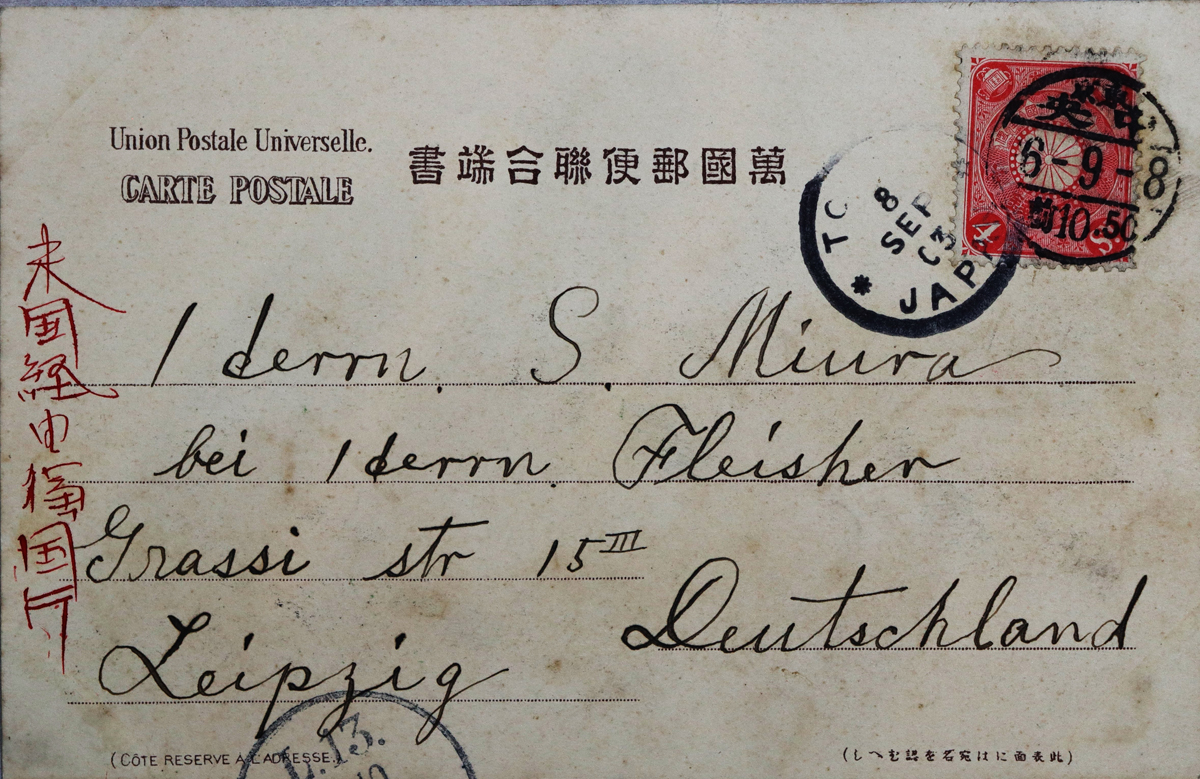 Union Postale Universelle.
CARTE POSTALE
書端合聯便郵國萬
8
SEP
03
JAPA
中央
6-9-8
前10.50
4 S.
米国経由
国行
Herrn. S. Miura
bei Herrn. Fleisher
Grassi str 15 III
Leipzig
Deutschland
13.
(CÔTE RESERVE A L'ADRESSE.)
(しへむ認を名宛はに面表此)